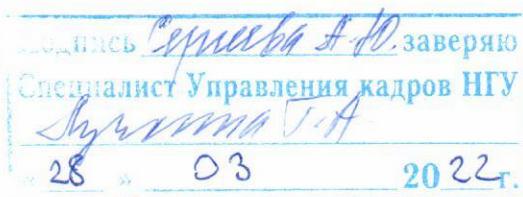 Подпись Сергеева А.Ю. заверяю
Специалист Управления кадров НГУ
Т.А
« 28 » 03 2022 г.